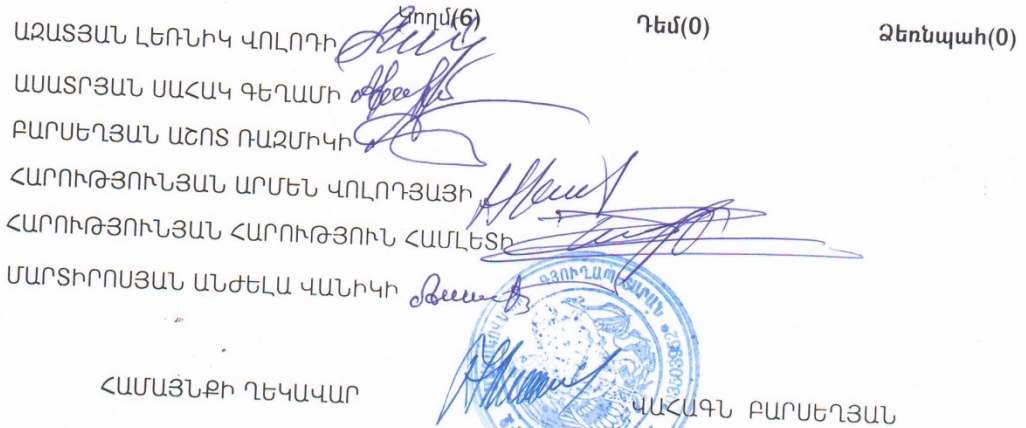 Կողմ(6) Դեմ(0) Ձեռնպահ(0)
ԱԶԱՏՅԱՆ ԼԵՌՆԻԿ ՎՈԼՈԴԻ
ԱՍԱՏՐՅԱՆ ՍԱՀԱԿ ԳԵՂԱՄԻ
ԲԱՐՍԵՂՅԱՆ ԱՇՈՏ ՌԱԶՄԻԿԻ
ՀԱՐՈՒԹՅՈՒՆՅԱՆ ԱՐՄԵՆ ՎՈԼՈԴՅԱՅԻ
ՀԱՐՈՒԹՅՈՒՆՅԱՆ ՀԱՐՈՒԹՅՈՒՆ ՀԱՄԼԵՏԻ
ՄԱՐՏԻՐՈՍՅԱՆ ԱՆԺԵԼԱ ՎԱՆԻԿԻ
ՀԱՄԱՅՆՔԻ ՂԵԿԱՎԱՐ ՎԱՀԱԳՆ ԲԱՐՍԵՂՅԱՆ